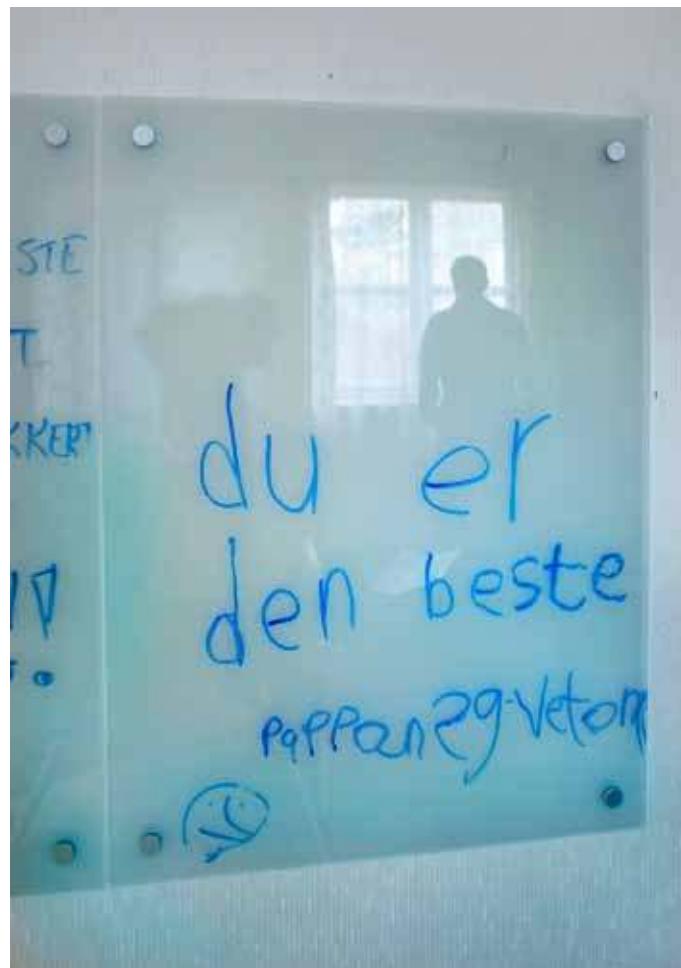 STE
T.
KKER
!!
du er
den beste
pappan eg vet om